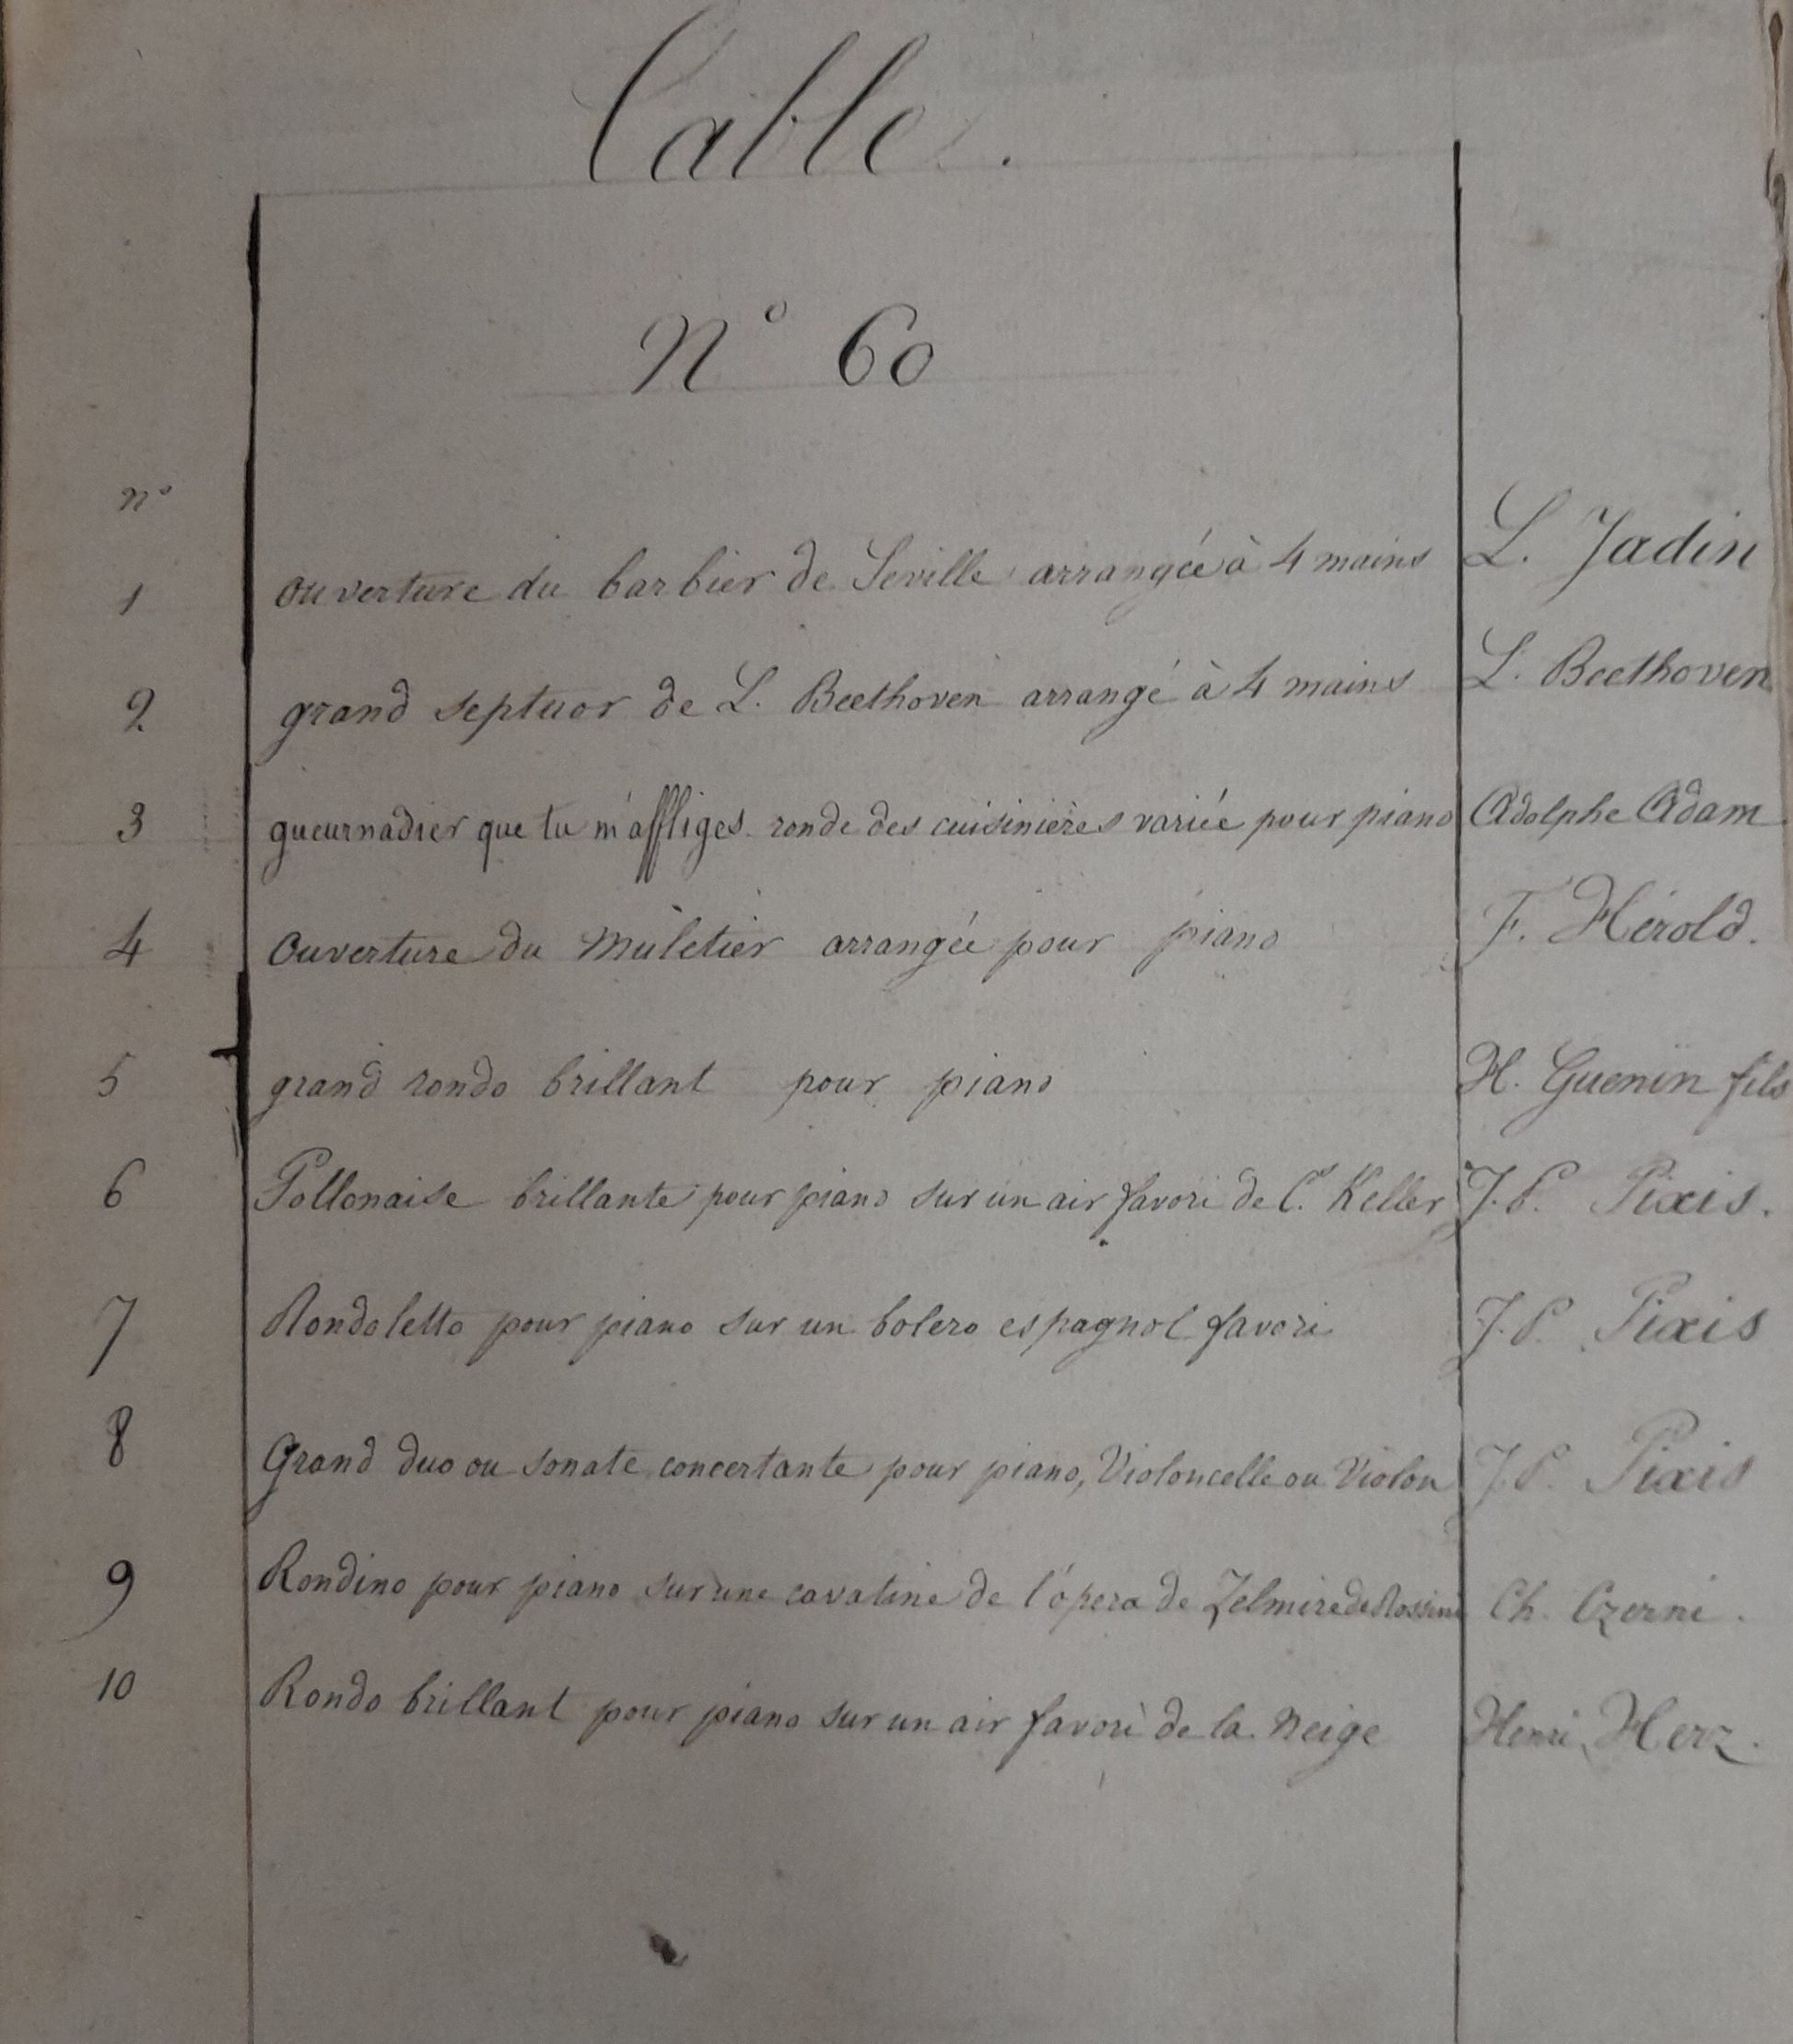 Table.
N° 60
n°
1 ouverture du barbier de Seville arrangée à 4 mains L. Jadin
2 grand septuor de L. Beethoven arrangé à 4 mains L. Beethoven
3 gueurnadier que tu m'affliges ronde des cuisinières variée pour piano Adolphe Adam
4 Ouverture du Muletier arrangée pour piano F. Hérold.
5 grand rondo brillant pour piano H. Guenin fils
6 Pollonaise brillante pour piano sur un air favori de C. Keller J. P. Pixis.
7 Rondoletto pour piano sur un bolero espagnol favori J. P. Pixis
8 Grand duo ou sonate concertante pour piano, Violoncelle ou Violon J. P. Pixis
9 Rondino pour piano sur une cavatine de l'opera de Zelmire de Rossini Ch. Czerni.
10 Rondo brillant pour piano sur un air favori de la Neige Henri Herz.